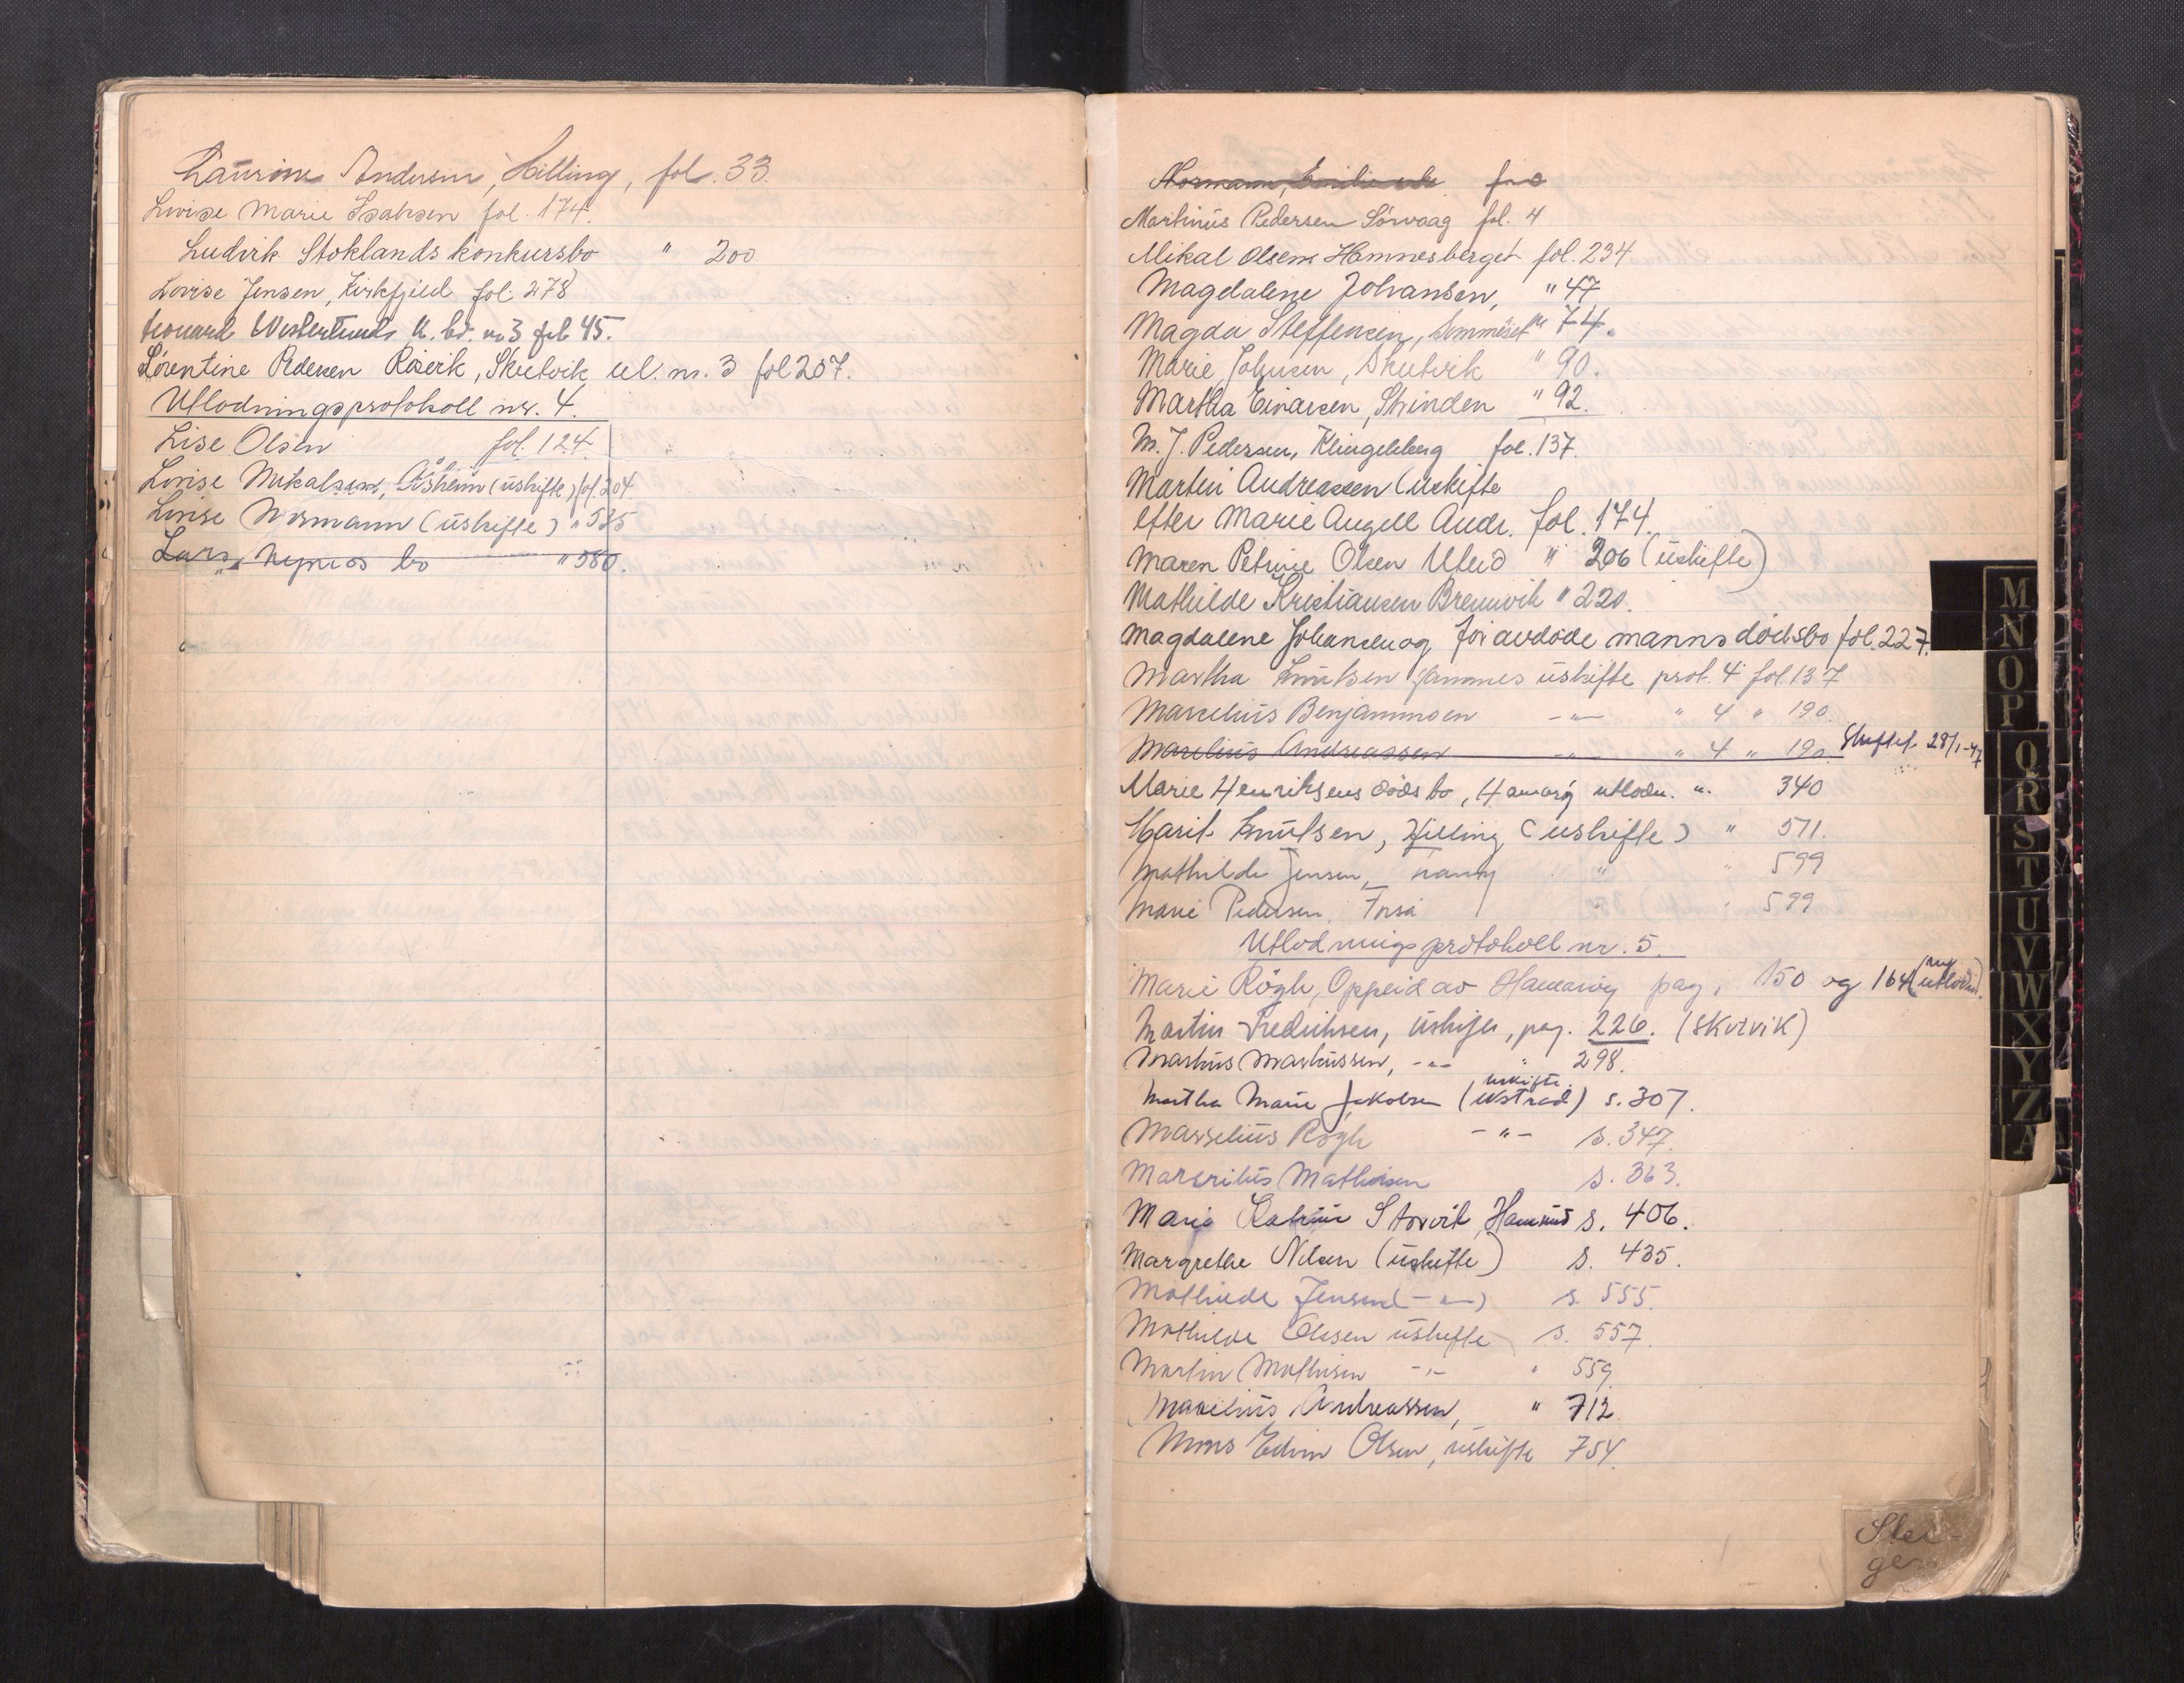 Laurine Andersen, Hilling, fol. 33.
Lovise Marie Isaksen fol. 174.
Ludvik Stoklands konkursbo " 200
Lovise Jensen, Kirkfjeld fol. 278
Leonard Westerlunds k. bo. nr 3 fol 45.
Lorentine Pedersen Röseik, Skutvik ul. nr. 3 fol 207.
Utlodningsprotokoll nr. 4.
Lise Olsen fol. 124
Lovise Mikalsen, Åsheim (uskifte) fol. 204
Lovise Normann (uskifte) " 535
Lars Nymos bo " 580.
Normann, Emilie fol
Martinus Pedersen Sörvaag fol. 4
Mikal Olsens Hamnesberget fol. 234
Magdalene Johansen, " 47
Magda Steffensen, Sommeset " 74.
Marie Johnsen, Skutvik " 90.
Martha Einarsen, Strinden " 92.
M. J. Pedersen, Klingelberg fol. 137.
Martin Andreassen (uskifte
efter Marie Angell Andr. fol. 174.
Maren Petrine Olsen Uleid " 206 (uskifte)
Mathilde Kristiansen Brennvik " 220.
Magdalene Johansen og för avdöde manns dödsbo fol. 227.
Martha Knutsen Jammes uskifte prot. 4 fol. 137
Marselius Benjaminsen -"- " 4 " 190.
Marselius Andreassen -"- " 4 " 190. Sluttet 28/1-47
Marie Henriksens dödsbo, Hamaröy utlodn. " 340
Marit Knutsen, Hilling (uskifte) " 511.
Mathilde Jensen, " " 599
Marie Pedersen, Forså " " 599
Utlodningsprotokoll nr. 5.
Marie Rögh, Oppeid av Hamaröy pag. 150 og 164 (ny utlodn.)
Martin Fredriksen, uskifte, pag. 226. (Skutvik)
Markus Markussen, -"- " 298.
uskifte
Martha Marie Jakobsen (Ulstrad) s. 307.
Marselius Rögh -"- s. 347.
Mathisen s. 363.
Marie Katrine Storvik, Hamsund s. 406.
Margrethe Nilsen (uskifte) s. 435.
Mathilde Jensen (-"-) s. 555.
Mathilde Olsen uskifte s. 557.
Martin Mathisen -"- " 559
Marselius Andreassen, " 712
Mons Edvin Olsen, uskifte 754.
M
N
O
P
Q
R
S
T
U
V
W
X
Y
Z
A
Stei-
gen